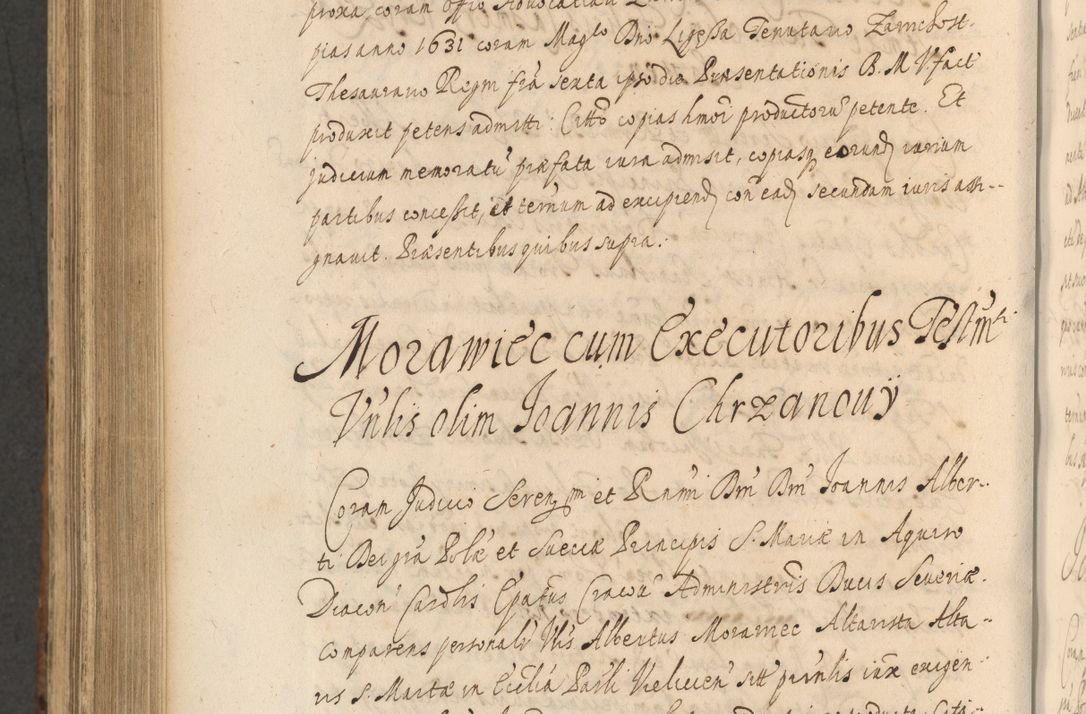 proxa coram offo Advocatiali
pias anno 1631 coram Magco Dno Ligęssa Tenutario Zamchost
Thesaurario Regni fra sexta ipso die Præsentationis B. M. V. fact
produxit petens admitti. Citto copias hmoi productoru petente. Et
judicium memoratu præfata iura admisit, copiasq eorund iurium
partibus concessit, et termum ad excipiend con ead secundam iuris assi-
gnauit. Præsentibus quibus supra.
Morawiec cum Executoribus Testm ti
Vnlis olim Joannis Chrzanouÿ
Coram Judicio Seren mi et Rnmi Dni Dni Joannis Alber-
ti Dei gra Polæ et Sueciæ Principis S. Mariæ in Aquiro
Diacon Cardlis Epatus Cracou Administris Ducis Seueriæ.
comparens personalr Vlis Albertus Morawiec Altarista Alta-
ris S. Martæ in Ecclia Parli Velicien sitt prinlis iure exigen